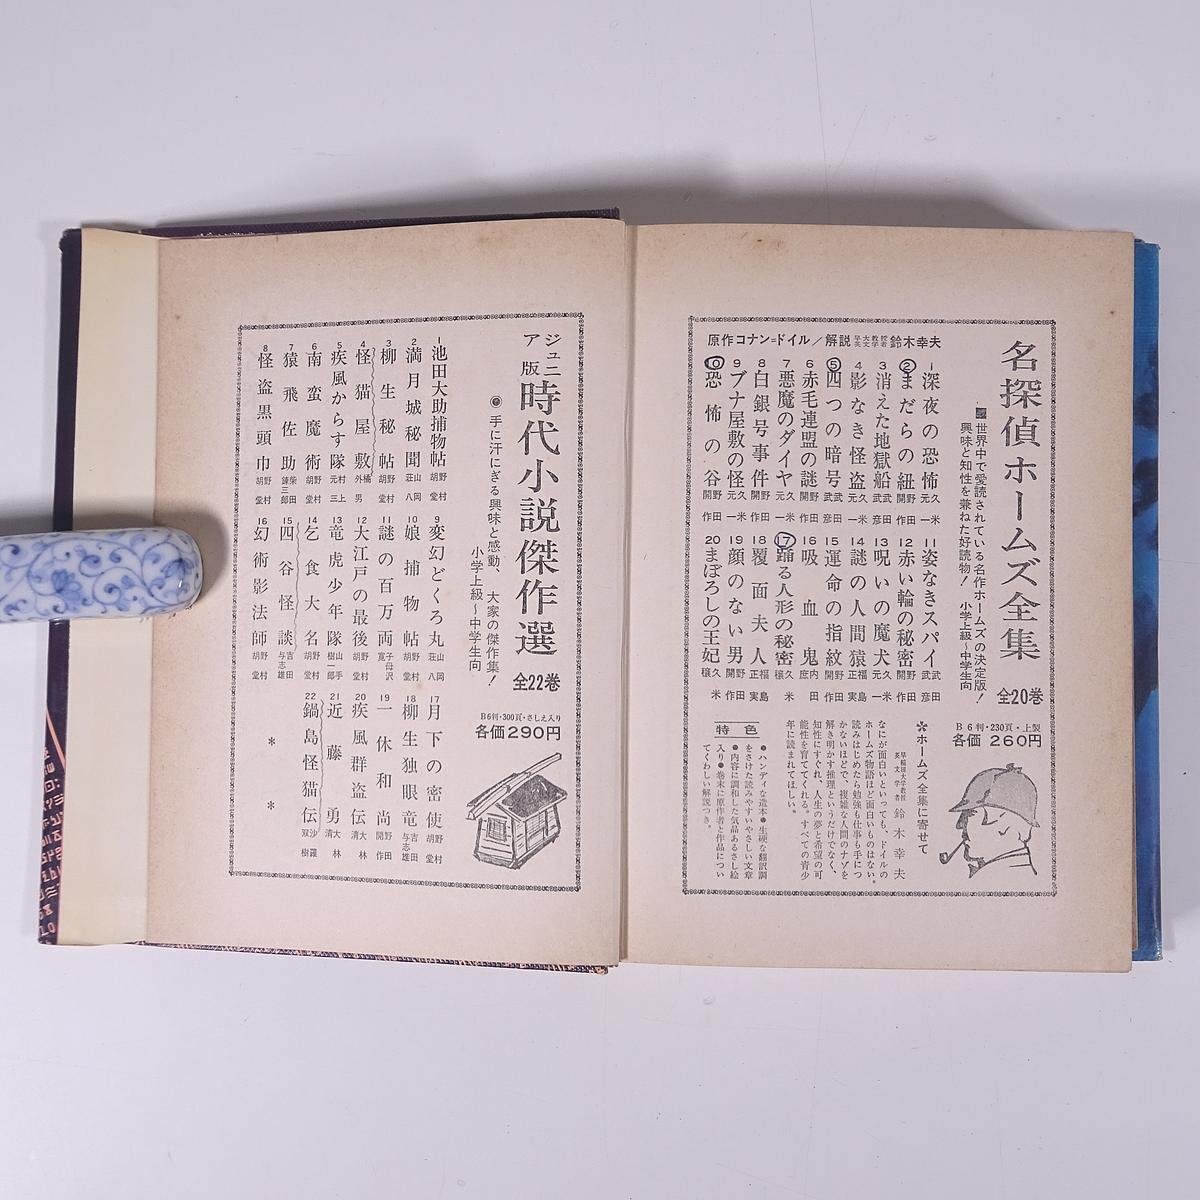 名探偵ホームズ全集
全20巻
世界中で愛読されている名作ホームズの決定版!
興味と知性を兼ねた好読物! 小学上級〜中学生向
B6判・230頁・上製
各価 260円
原作コナン=ドイル/解説 早大教授 英文学者 鈴木幸夫
1 深夜の恐怖 久米元一
2 まだらの紐 野田開作
3 消えた地獄船 武田武彦
4 影なき怪盗 久米元一
5 四つの暗号 武田武彦
6 赤毛連盟の謎 野田開作
7 悪魔のダイヤ 久米元一
8 白銀号事件 野田開作
9 ブナ屋敷の怪 久米元一
10 恐怖の谷 野田開作
11 姿なきスパイ 武田武彦
12 赤い輪の秘密 野田開作
13 呪いの魔犬 久米元一
14 謎の人間猿 福島正実
15 運命の指紋 野田開作
16 吸血鬼 内田庶
17 踊る人形の秘密 久米穣
18 覆面夫人 福島正実
19 顔のない男 野田開作
20 まぼろしの王妃 久米穣
✻ホームズ全集に寄せて
早稲田大学教授
英文学者 鈴木幸夫
なにが面白いといっても、ドイルの
ホームズ物語ほど面白いものはない。
読みはじめたら勉強も仕事も手につ
かないほどで、複雑な人間のナゾを
解き明かす推理というだけでなく、
知性にすぐれ、人生の夢と希望の可
能性を育ててくれる。すべての青少
年に読まれてほしい。
特色
●ハンディな造本●生硬な翻訳調
をさけた読みやすいやさしい文章
●内容に調和した気品あるさし絵
入り●巻末に原作者と作品につい
てくわしい解説つき。
ジュニア版 時代小説傑作選
全22巻
手に汗にぎる興味と感動、大家の傑作集!
小学上級〜中学生向
B6判・300頁・さしえ入り
各価290円
1 池田大助捕物帖 野村胡堂
2 満月城秘聞 山岡荘八
3 柳生秘帖 野村胡堂
4 怪猫屋敷 橘外男
5 疾風からす隊 村上元三
6 南蛮魔術 野村胡堂
7 猿飛佐助 柴田錬三郎
8 怪盗黒頭巾 野村胡堂
9 変幻どくろ丸 山岡荘八
10 娘捕物帖 野村胡堂
11 謎の百万両 子母沢寛
12 大江戸の最後 野村胡堂
13 竜虎少年隊 山手樹一郎
14 乞食大名 野村胡堂
15 四谷怪談 吉田与志雄
16 幻術影法師 野村胡堂
17 月下の密使 野村胡堂
18 柳生独眼竜 吉田与志雄
19 一休和尚 野田開作
20 疾風群盗伝 大林清
21 近藤勇 大林清
22 鍋島怪猫伝 沙羅双樹
* *